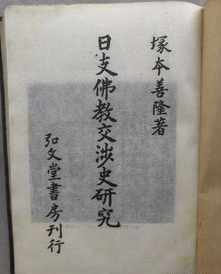 塚本善隆著
日支佛教交渉史研究
弘文堂書房刊行